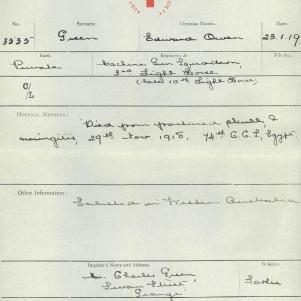 No. Surname. Christian Names. Date.
3535 Green Edward Owen 23.1.19
Rank. Regiment, &c. File No.
Private Machine Gun Squadron,
2nd Light Horse
(late 10th Light Horse)
C/
L/
OFFICIAL REPORTS: Died from fractured skull &
meningitis, 29th Nov. 1918, 74th C.C.S, Egypt.
Other Information:
Enlisted in Western Australia
Inquirer's Name and Address. Relation.
Mr. Charles Green Father
Swan Street